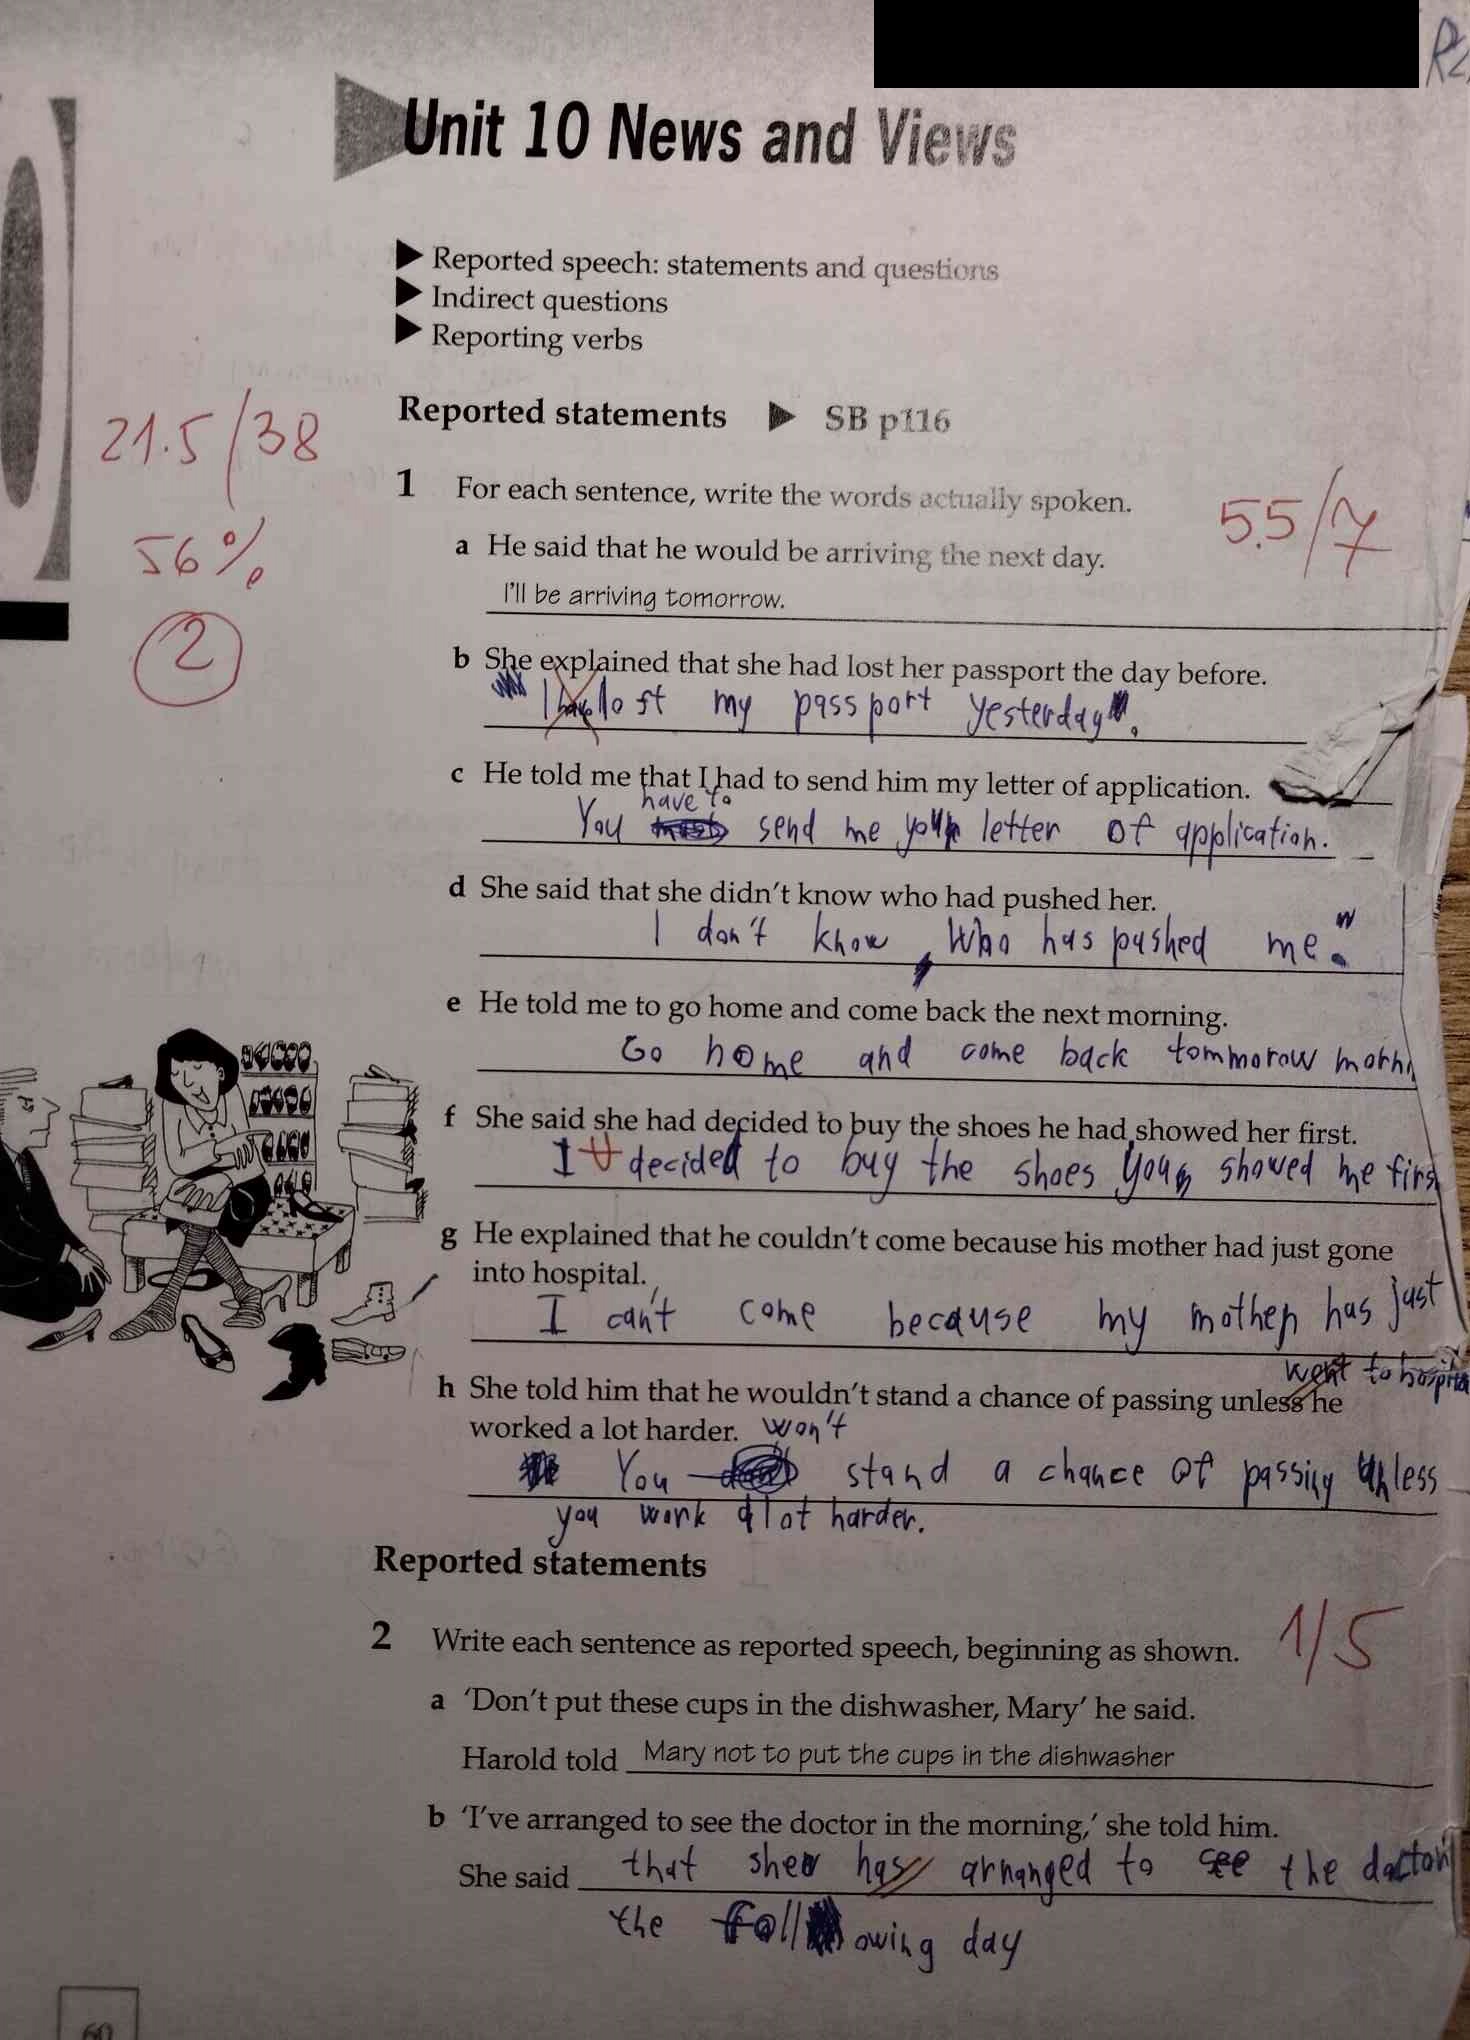 Unit 10 News and Views
Reported speech: statements and questions
Indirect questions
Reporting verbs
21.5/38
56%
2
Reported statements SB p116
1 For each sentence, write the words actually spoken.
5.5/7
a He said that he would be arriving the next day.
I'll be arriving tomorrow.
b She explained that she had lost her passport the day before.
I lost my passport yesterday.
c He told me that I had to send him my letter of application.
have to
You send me your letter of application.
d She said that she didn't know who had pushed her.
I don't know, who has pushed me.
e He told me to go home and come back the next morning.
Go home and come back tommorow morni
f She said she had decided to buy the shoes he had showed her first.
I decided to buy the shoes you showed me firs
g He explained that he couldn't come because his mother had just gone
into hospital.
I can't come because my mother has just
went to hospita
h She told him that he wouldn't stand a chance of passing unless he
worked a lot harder. won't
You stand a chance of passing unless
you work a lot harder.
Reported statements
2 Write each sentence as reported speech, beginning as shown.
1/5
a 'Don't put these cups in the dishwasher, Mary' he said.
Harold told Mary not to put the cups in the dishwasher
b 'I've arranged to see the doctor in the morning,' she told him.
She said that she has arranged to see the doctor
the following day
60